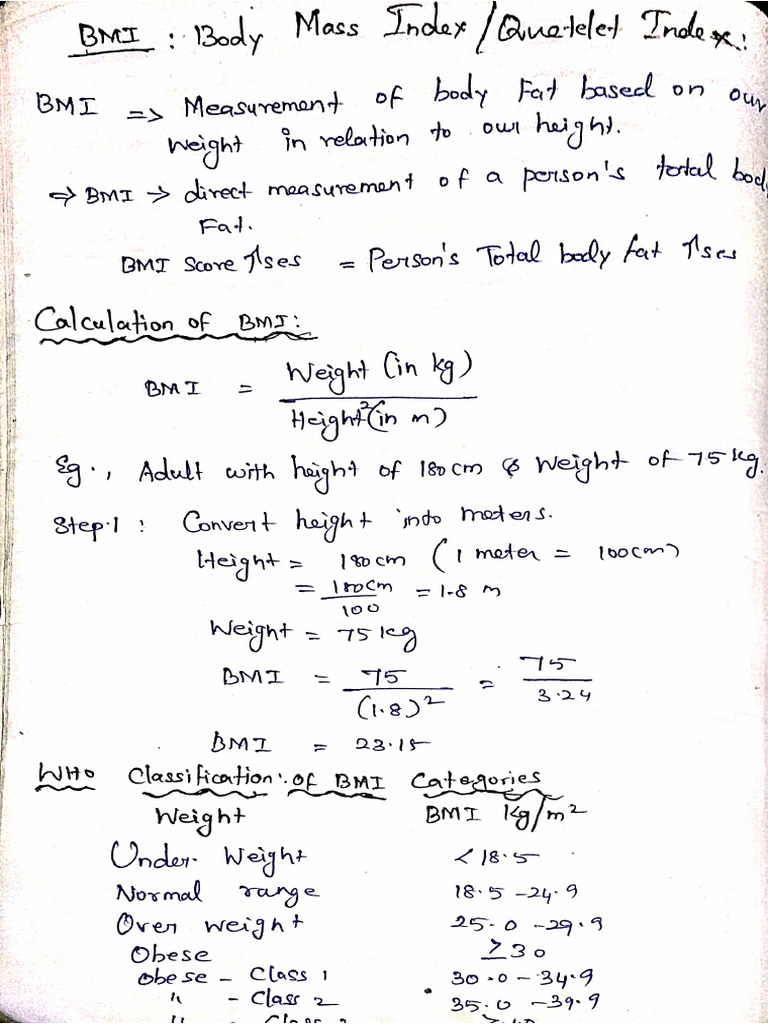 BMI : Body Mass Index/Quetelet Index:
BMI => Measurement of body Fat based on our
Weight in relation to our height.
=> BMI → direct measurement of a person's total body
Fat.
BMI score ↑ses = Person's Total body fat ↑ses
Calculation of BMI:
BMI = Weight (in kg)
Height²(in m)
Eg., Adult with height of 180cm & Weight of 75kg.
Step.1 : Convert height into meters.
Height = 180cm (1 meter = 100cm)
= 180cm = 1.8 m
100
Weight = 75 kg
BMI = 75 = 75
(1.8)² 3.24
BMI = 23.15
WHO Classification of BMI Categories
Weight BMI Kg/m²
Under Weight < 18.5
Normal range 18.5 - 24.9
Over weight 25.0 - 29.9
Obese ≥ 30
obese - Class 1 30.0 - 34.9
" - Class 2 35.0 - 39.9
" Class